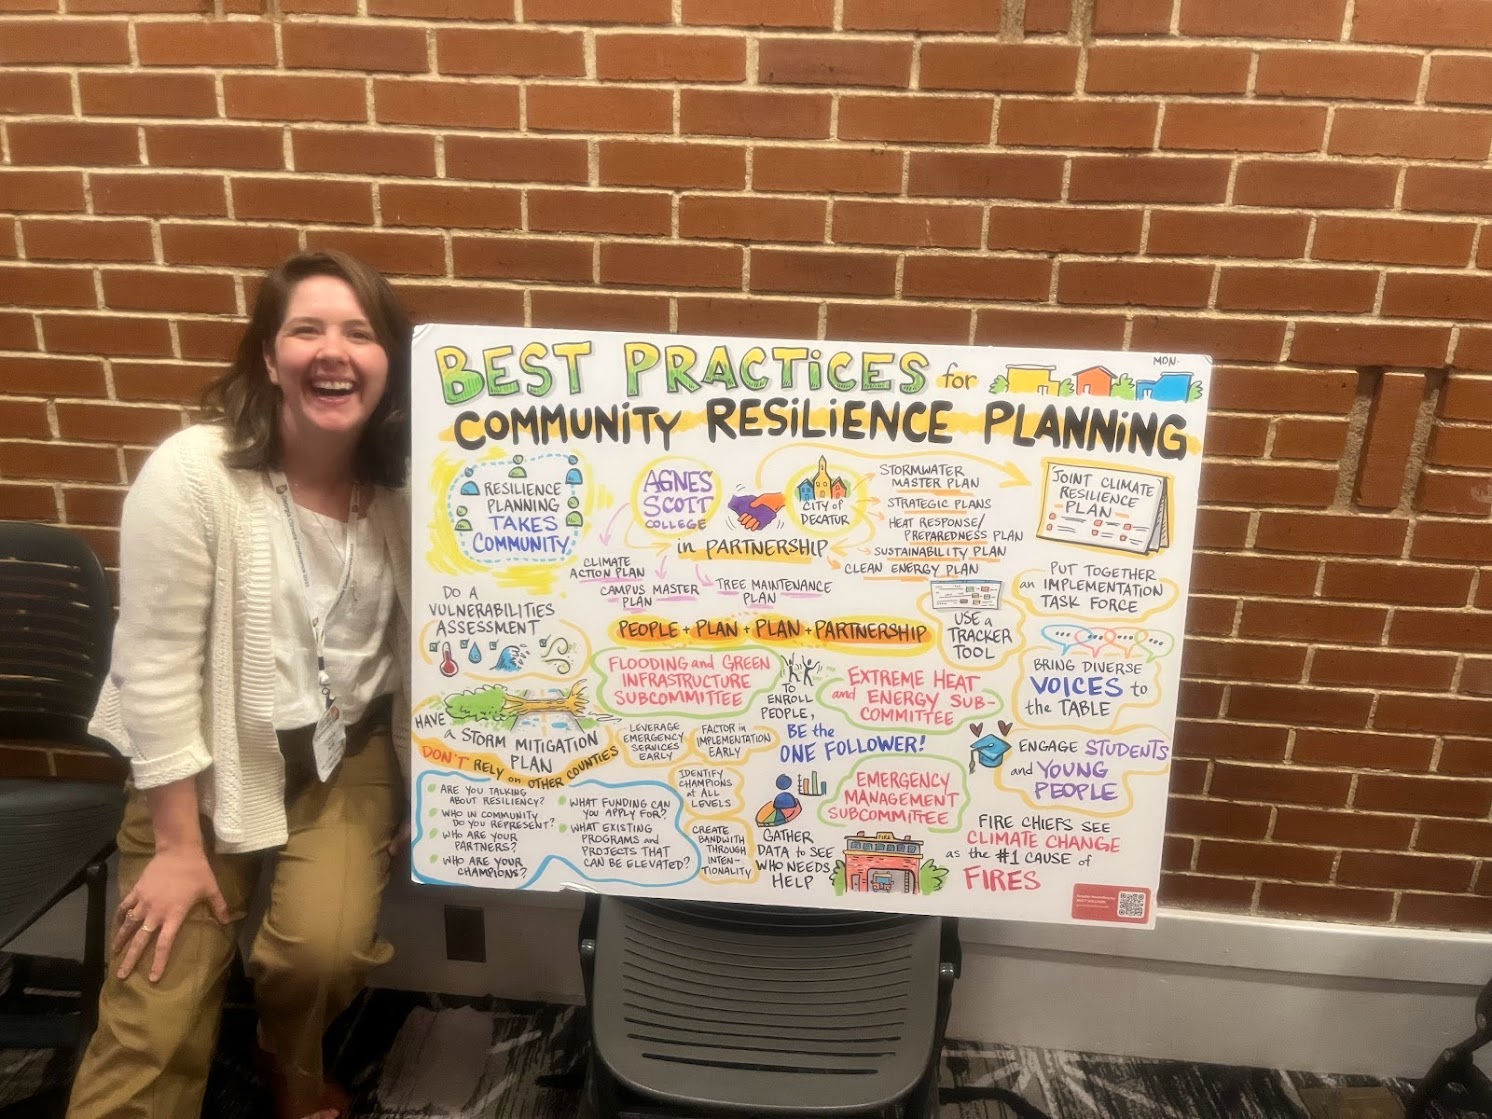 BEST PRACTICES for
MON.
COMMUNITY RESILIENCE PLANNING
RESILIENCE
PLANNING
TAKES
COMMUNITY
AGNES
SCOTT
COLLEGE
in PARTNERSHIP
CITY of
DECATUR
STORMWATER
MASTER PLAN
STRATEGIC PLANS
HEAT RESPONSE/
PREPAREDNESS PLAN
SUSTAINABILITY PLAN
CLEAN ENERGY PLAN
JOINT CLIMATE
RESILIENCE
PLAN
CLIMATE
ACTION PLAN
CAMPUS MASTER
PLAN
TREE MAINTENANCE
PLAN
PEOPLE + PLAN + PLAN + PARTNERSHIP
USE a
TRACKER
TOOL
PUT TOGETHER
an IMPLEMENTATION
TASK FORCE
DO A
VULNERABILITIES
ASSESSMENT
FLOODING and GREEN
INFRASTRUCTURE
SUBCOMMITTEE
TO
ENROLL
PEOPLE,
BE the
ONE FOLLOWER!
EXTREME HEAT
and ENERGY SUB-
COMMITTEE
BRING DIVERSE
VOICES to
the TABLE
HAVE
a STORM MITIGATION
PLAN
DON'T RELY on OTHER COUNTIES
LEVERAGE
EMERGENCY
SERVICES
EARLY
FACTOR in
IMPLEMENTATION
EARLY
IDENTIFY
CHAMPIONS
at ALL
LEVELS
CREATE
BANDWITH
THROUGH
INTEN-
TIONALITY
GATHER
DATA to SEE
WHO NEEDS
HELP
EMERGENCY
MANAGEMENT
SUBCOMMITTEE
ENGAGE STUDENTS
and YOUNG
PEOPLE
ARE YOU TALKING
ABOUT RESILIENCY?
WHO IN COMMUNITY
DO YOU REPRESENT?
WHO ARE YOUR
PARTNERS?
WHO ARE YOUR
CHAMPIONS?
WHAT FUNDING CAN
YOU APPLY FOR?
WHAT EXISTING
PROGRAMS and
PROJECTS THAT
CAN BE ELEVATED?
FIRE
FIRE CHIEFS SEE
CLIMATE CHANGE
as the #1 CAUSE of
FIRES